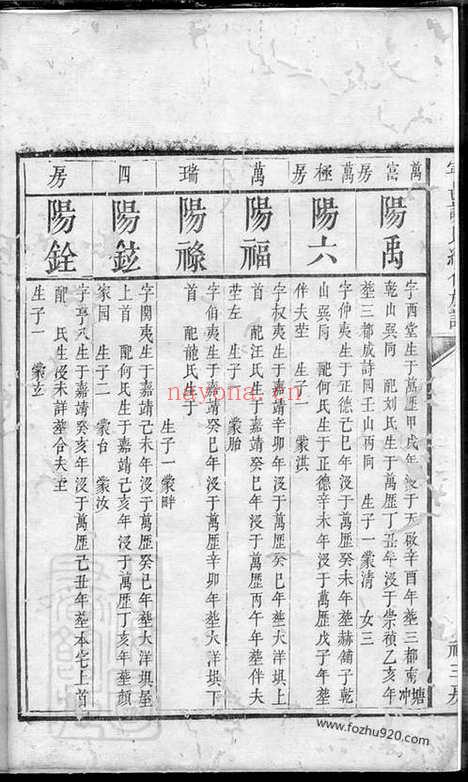 萬富房
陽禹
字西堂生于萬歷甲戌年浸于天啟辛酉年塟三都南冲塘
乾山巽向 配刘氏生于萬歷丁丑年浸于崇禎乙亥年
塟三都成詩園壬山丙向 生子一蒙清 女三
萬極房
陽六
字仲夷生于正德己巳年浸于萬歷癸未年塟赫鋪子乾
山巽向 配何氏生于正德辛未年浸于萬歷戊子年塟
伴夫塋 生子一 蒙淇
萬
陽福
字权夷生于嘉靖辛卯年浸于萬歷癸巳年塟大洋垻上
首 配汪氏生于嘉靖癸巳年浸于萬歷丙午年塟伴夫
塋左 生子一 蒙胎
瑞
陽祿
字伯夷生于嘉靖癸巳年浸于萬歷辛卯年塟大洋垻下
首 配龍氏生于
生子一 蒙畔
四
陽鉉
字閑夷生于嘉靖己未年浸于萬歷癸巳年塟大洋垻屋
上首 配何氏生于嘉靖己亥年浸于萬歷丁亥年塟顔
家园 生子二 蒙台 蒙汝
房
陽銓
字亨夷生于嘉靖癸亥年浸于萬歷己丑年塟本宅上首
配 氏生浸未詳塟合夫塋
生子一 蒙玄
nayona.cn
www.fozhu920.com